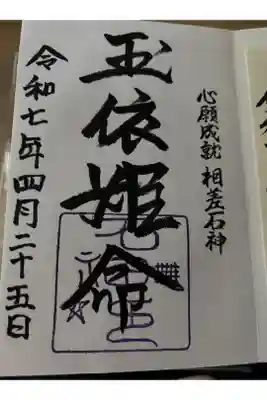 心願成就 相差石神
玉依姫命
令和七年四月二十五日